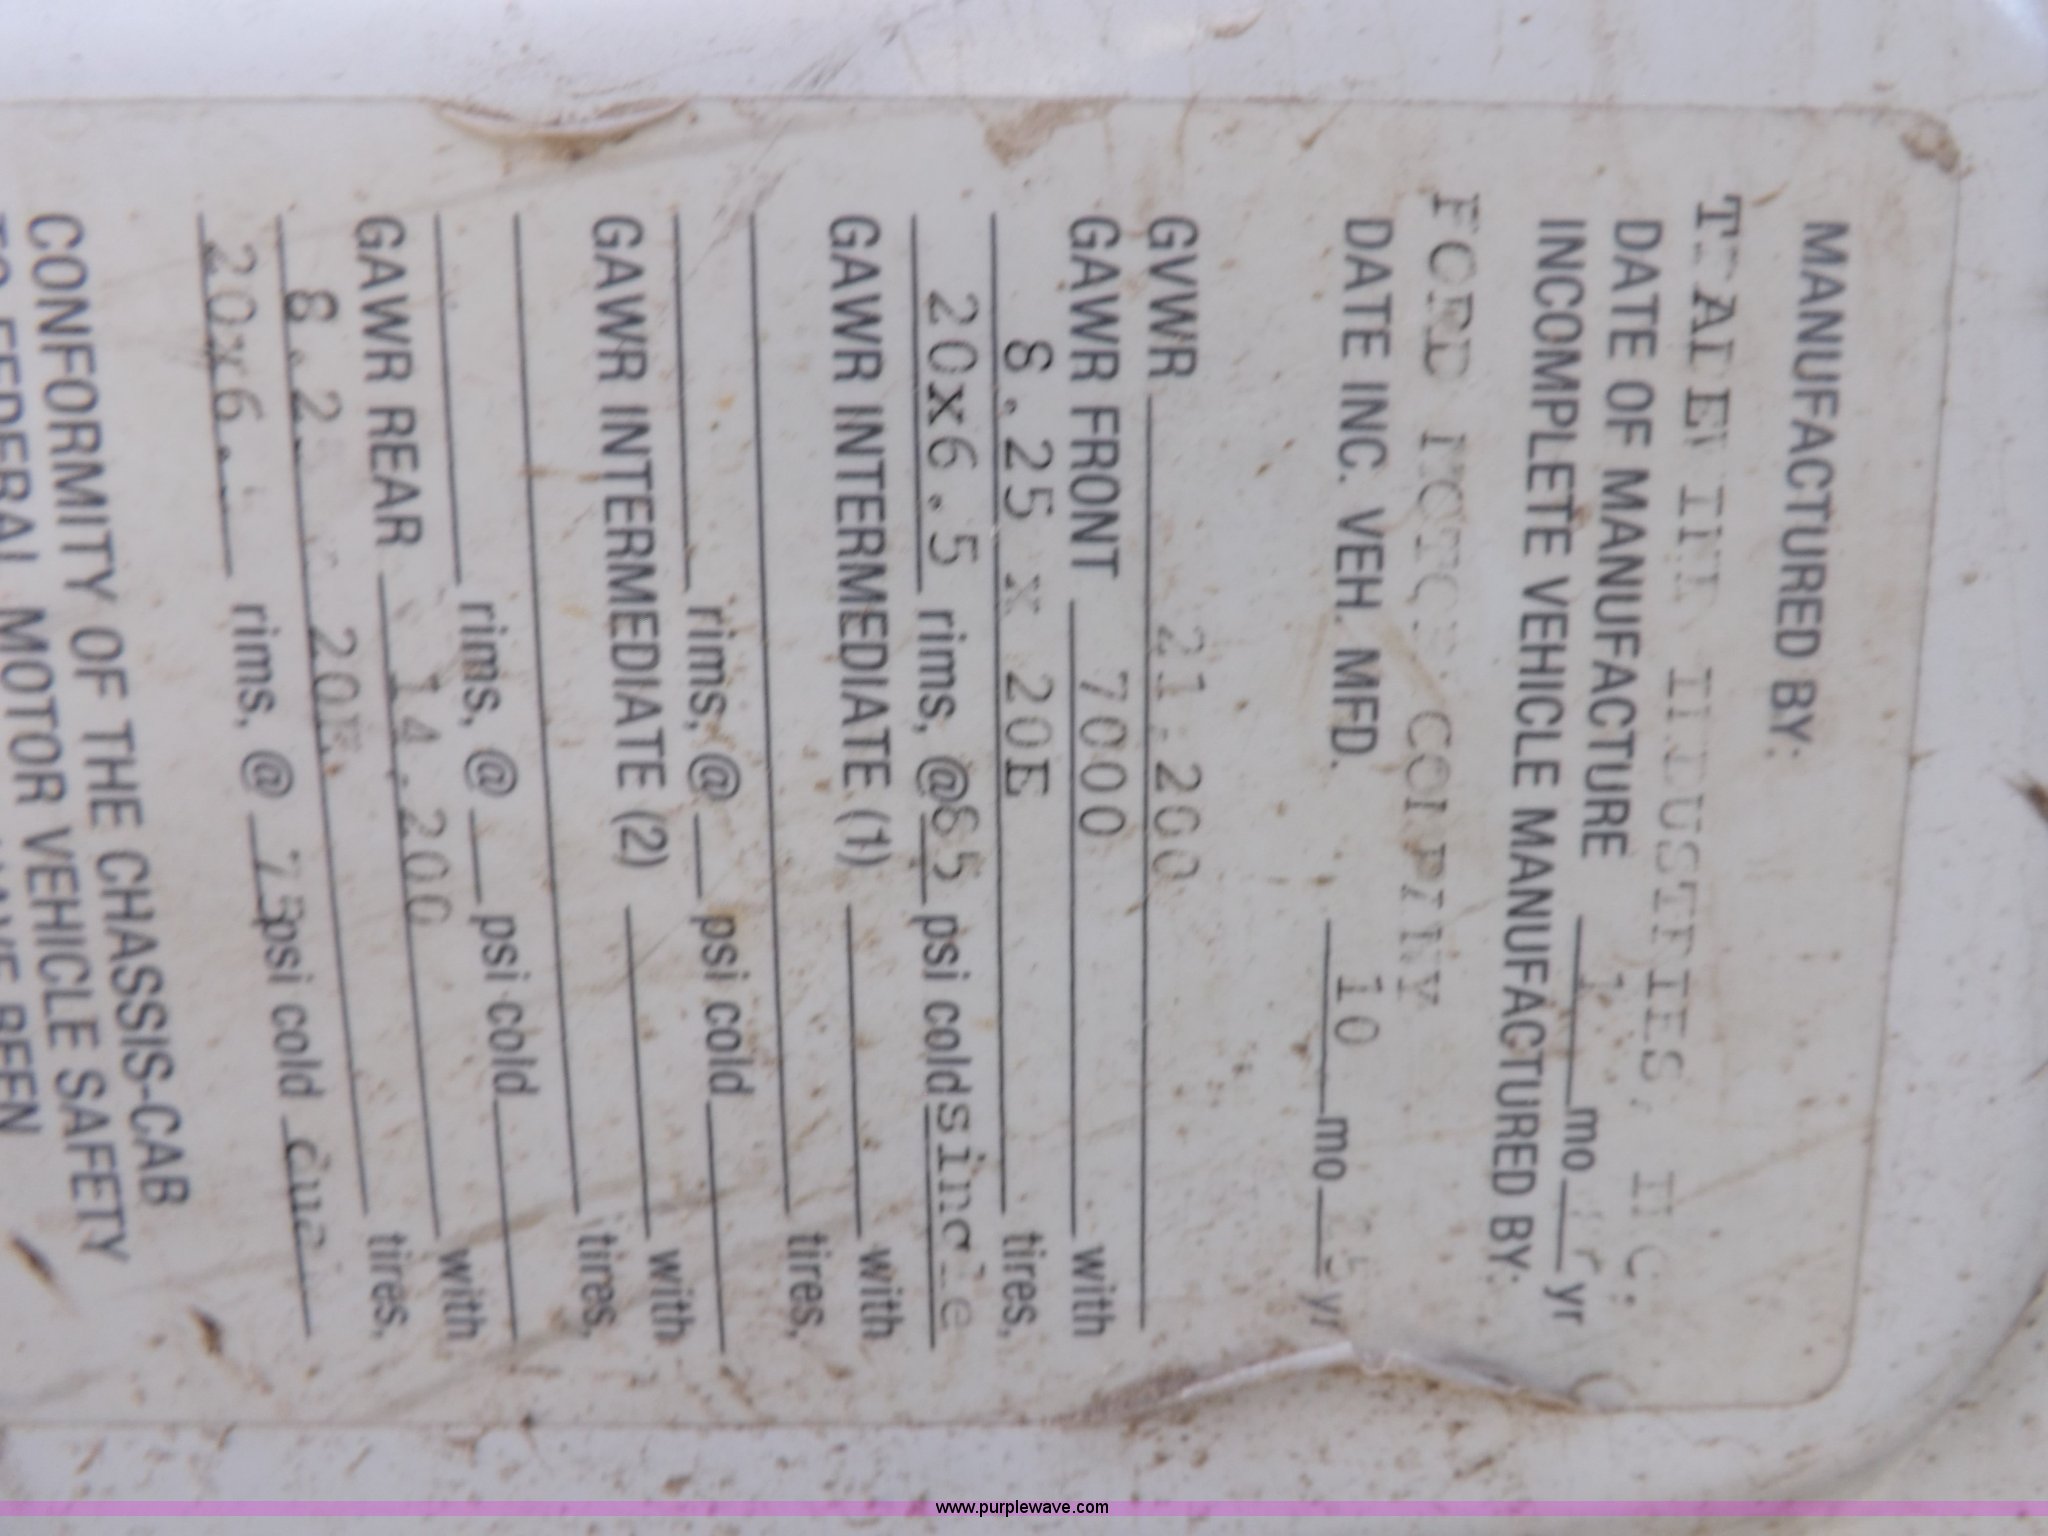 MANUFACTURED BY:
INDUSTRIES, INC.
DATE OF MANUFACTURE 1 mo yr
INCOMPLETE VEHICLE MANUFACTURED BY:
FORD MOTOR COMPANY
DATE INC. VEH. MFD. 10 mo yr
GVWR 21,200
GAWR FRONT 7000 with
8.25 x 20E tires,
20x6.5 rims, @ psi cold single
GAWR INTERMEDIATE (1) with
tires,
rims, @ psi cold
GAWR INTERMEDIATE (2) with
tires,
rims, @ psi cold
GAWR REAR 14,200 with
8.2 20E tires,
20x6. rims, @ 75 psi cold
CONFORMITY OF THE CHASSIS-CAB
TO FEDERAL MOTOR VEHICLE SAFETY
HAVE BEEN
www.purplewave.com